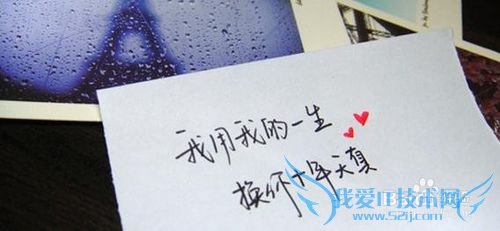 我用我的一生
换你十年天真
我爱IT技术网
www.52ij.com